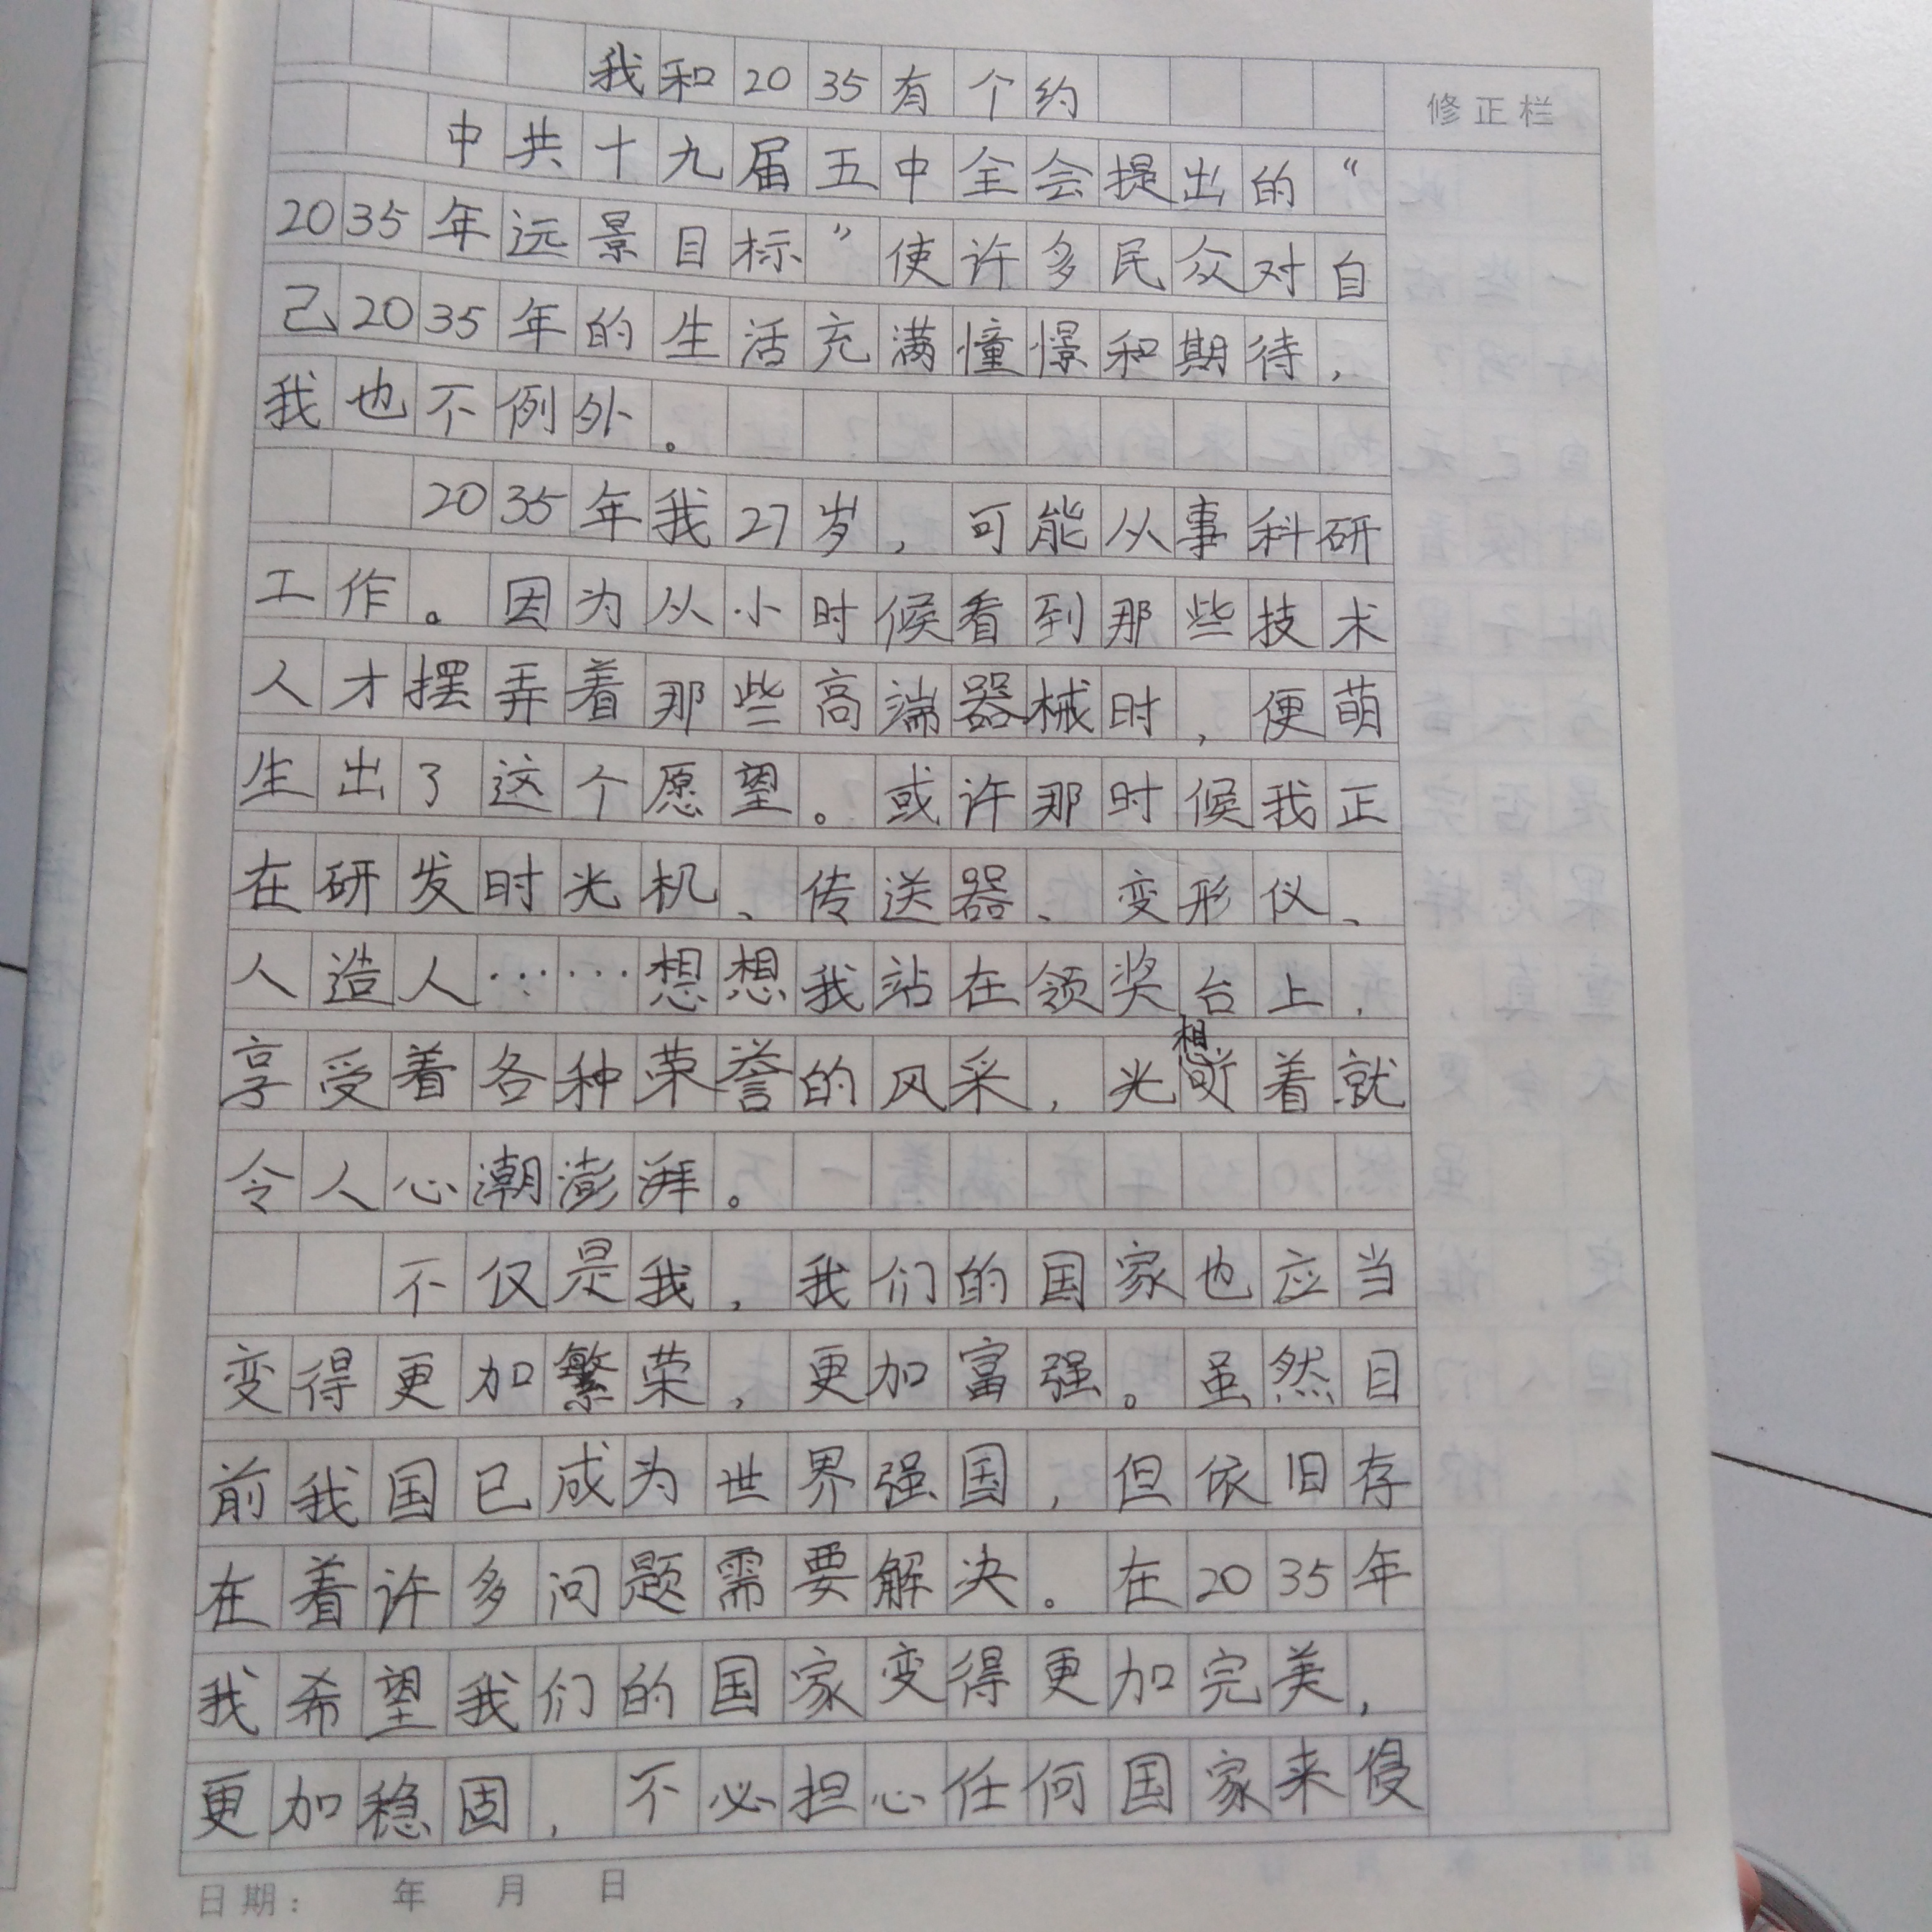 我和2035有个约
修正栏
中共十九届五中全会提出的“
2035年远景目标”使许多民众对自
己2035年的生活充满憧憬和期待，
我也不例外。
2035年我27岁，可能从事科研
工作。因为从小时候看到那些技术
人才摆弄着那些高端器械时，便萌
生出了这个愿望。或许那时候我正
在研发时光机、传送器、变形仪、
人造人……想想我站在领奖台上，
享受着各种荣誉的风采，光想着就
令人心潮澎湃。
不仅是我，我们的国家也应当
变得更加繁荣，更加富强。虽然目
前我国已成为世界强国，但依旧存
在着许多问题需要解决。在2035年
我希望我们的国家变得更加完美，
更加稳固，不必担心任何国家来侵
日期： 年 月 日